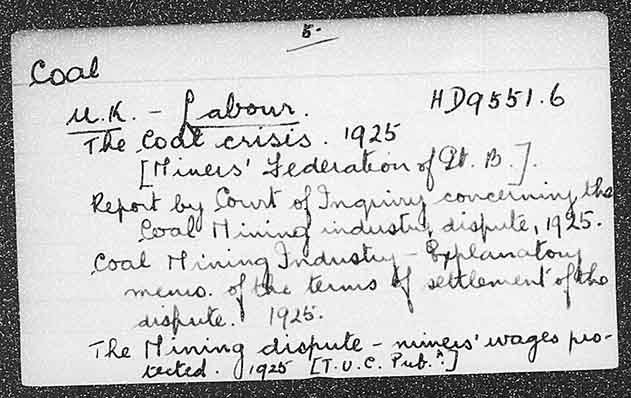 5.
Coal
U.K. - Labour. HD9551.6
The Coal crisis. 1925
[Miners' Federation of Gt. B.].
Report by Court of Inquiry concerning the
Coal Mining industry dispute, 1925.
Coal Mining Industry - Explanatory
memo. of the terms of settlement of the
dispute. 1925.
The Mining dispute - miners' wages pro-
tected. 1925 [T.U.C. Pub.n]